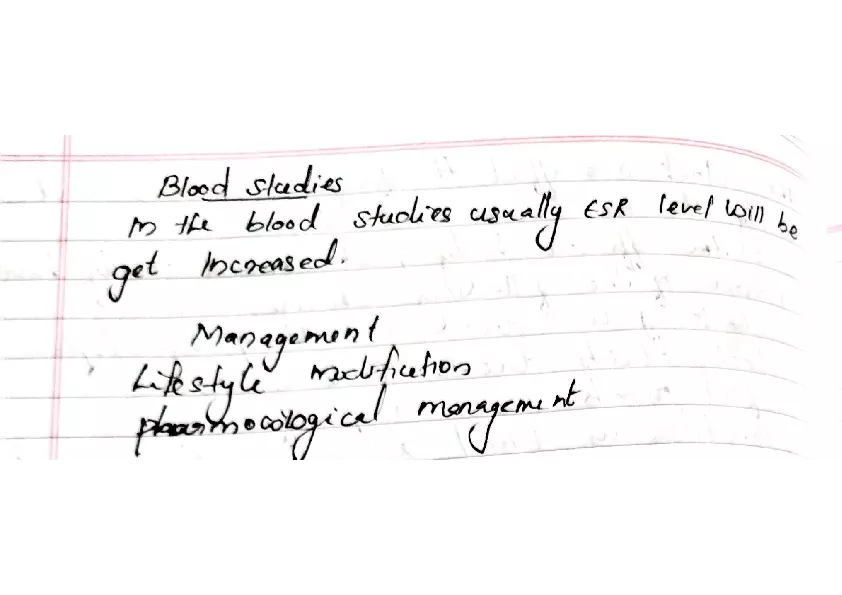 Blood studies
In the blood studies usually ESR level will be
get Increased.
Management
Lifestyle modification
pharmocological management